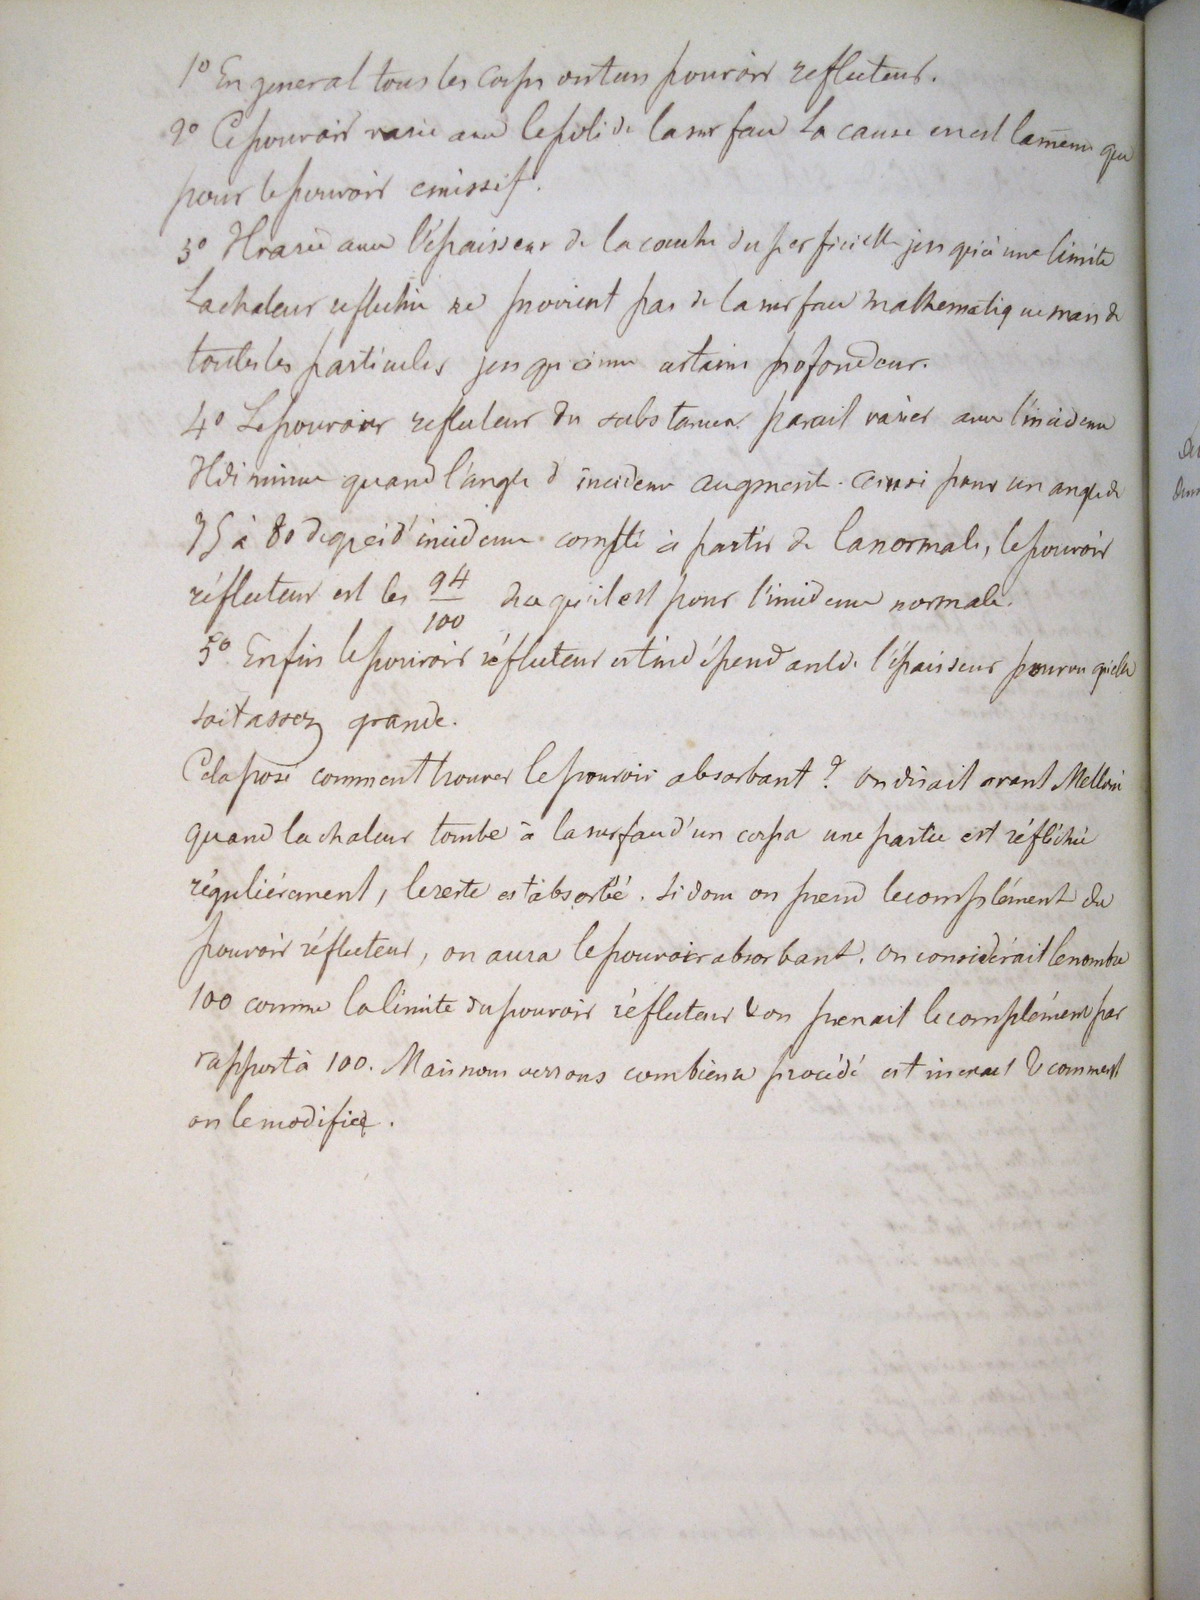 1° En general tous les corps ont un pouvoir reflecteur.
2° Ce pouvoir varie avec le poli de la surface La cause en est la même que
pour le pouvoir emissif.
3° Il varie avec l'épaisseur de la couche superficielle jusqu'à une limite
La chaleur reflechie ne provient pas de la surface mathematique mais de
toutes les particules jusqu'à une certaine profondeur.
4° Le pouvoir reflecteur des substances parait varier avec l'incidence
Il diminue quand l'angle d'incidence augmente. Ainsi pour un angle de
75 à 80 degrés d'incidence compté à partir de la normale, le pouvoir
réflecteur est les 94/100 de ce qu'il est pour l'incidence normale.
5° Enfin le pouvoir réflecteur est indépendant de l'épaisseur pourvu qu'elle
soit assez grande.
Cela posé comment trouver le pouvoir absorbant ? On disait avant Melloni
quand la chaleur tombe à la surface d'un corps une partie est réfléchie
réguliérement, le reste est absorbé. Si donc on prend le complément du
pouvoir réflecteur, on aura le pouvoir absorbant. On considérait le nombre
100 comme la limite du pouvoir réflecteur & on prenait le complément par
rapport à 100. Mais nous verrons combien ce procédé est inexact & comment
on le modifie.